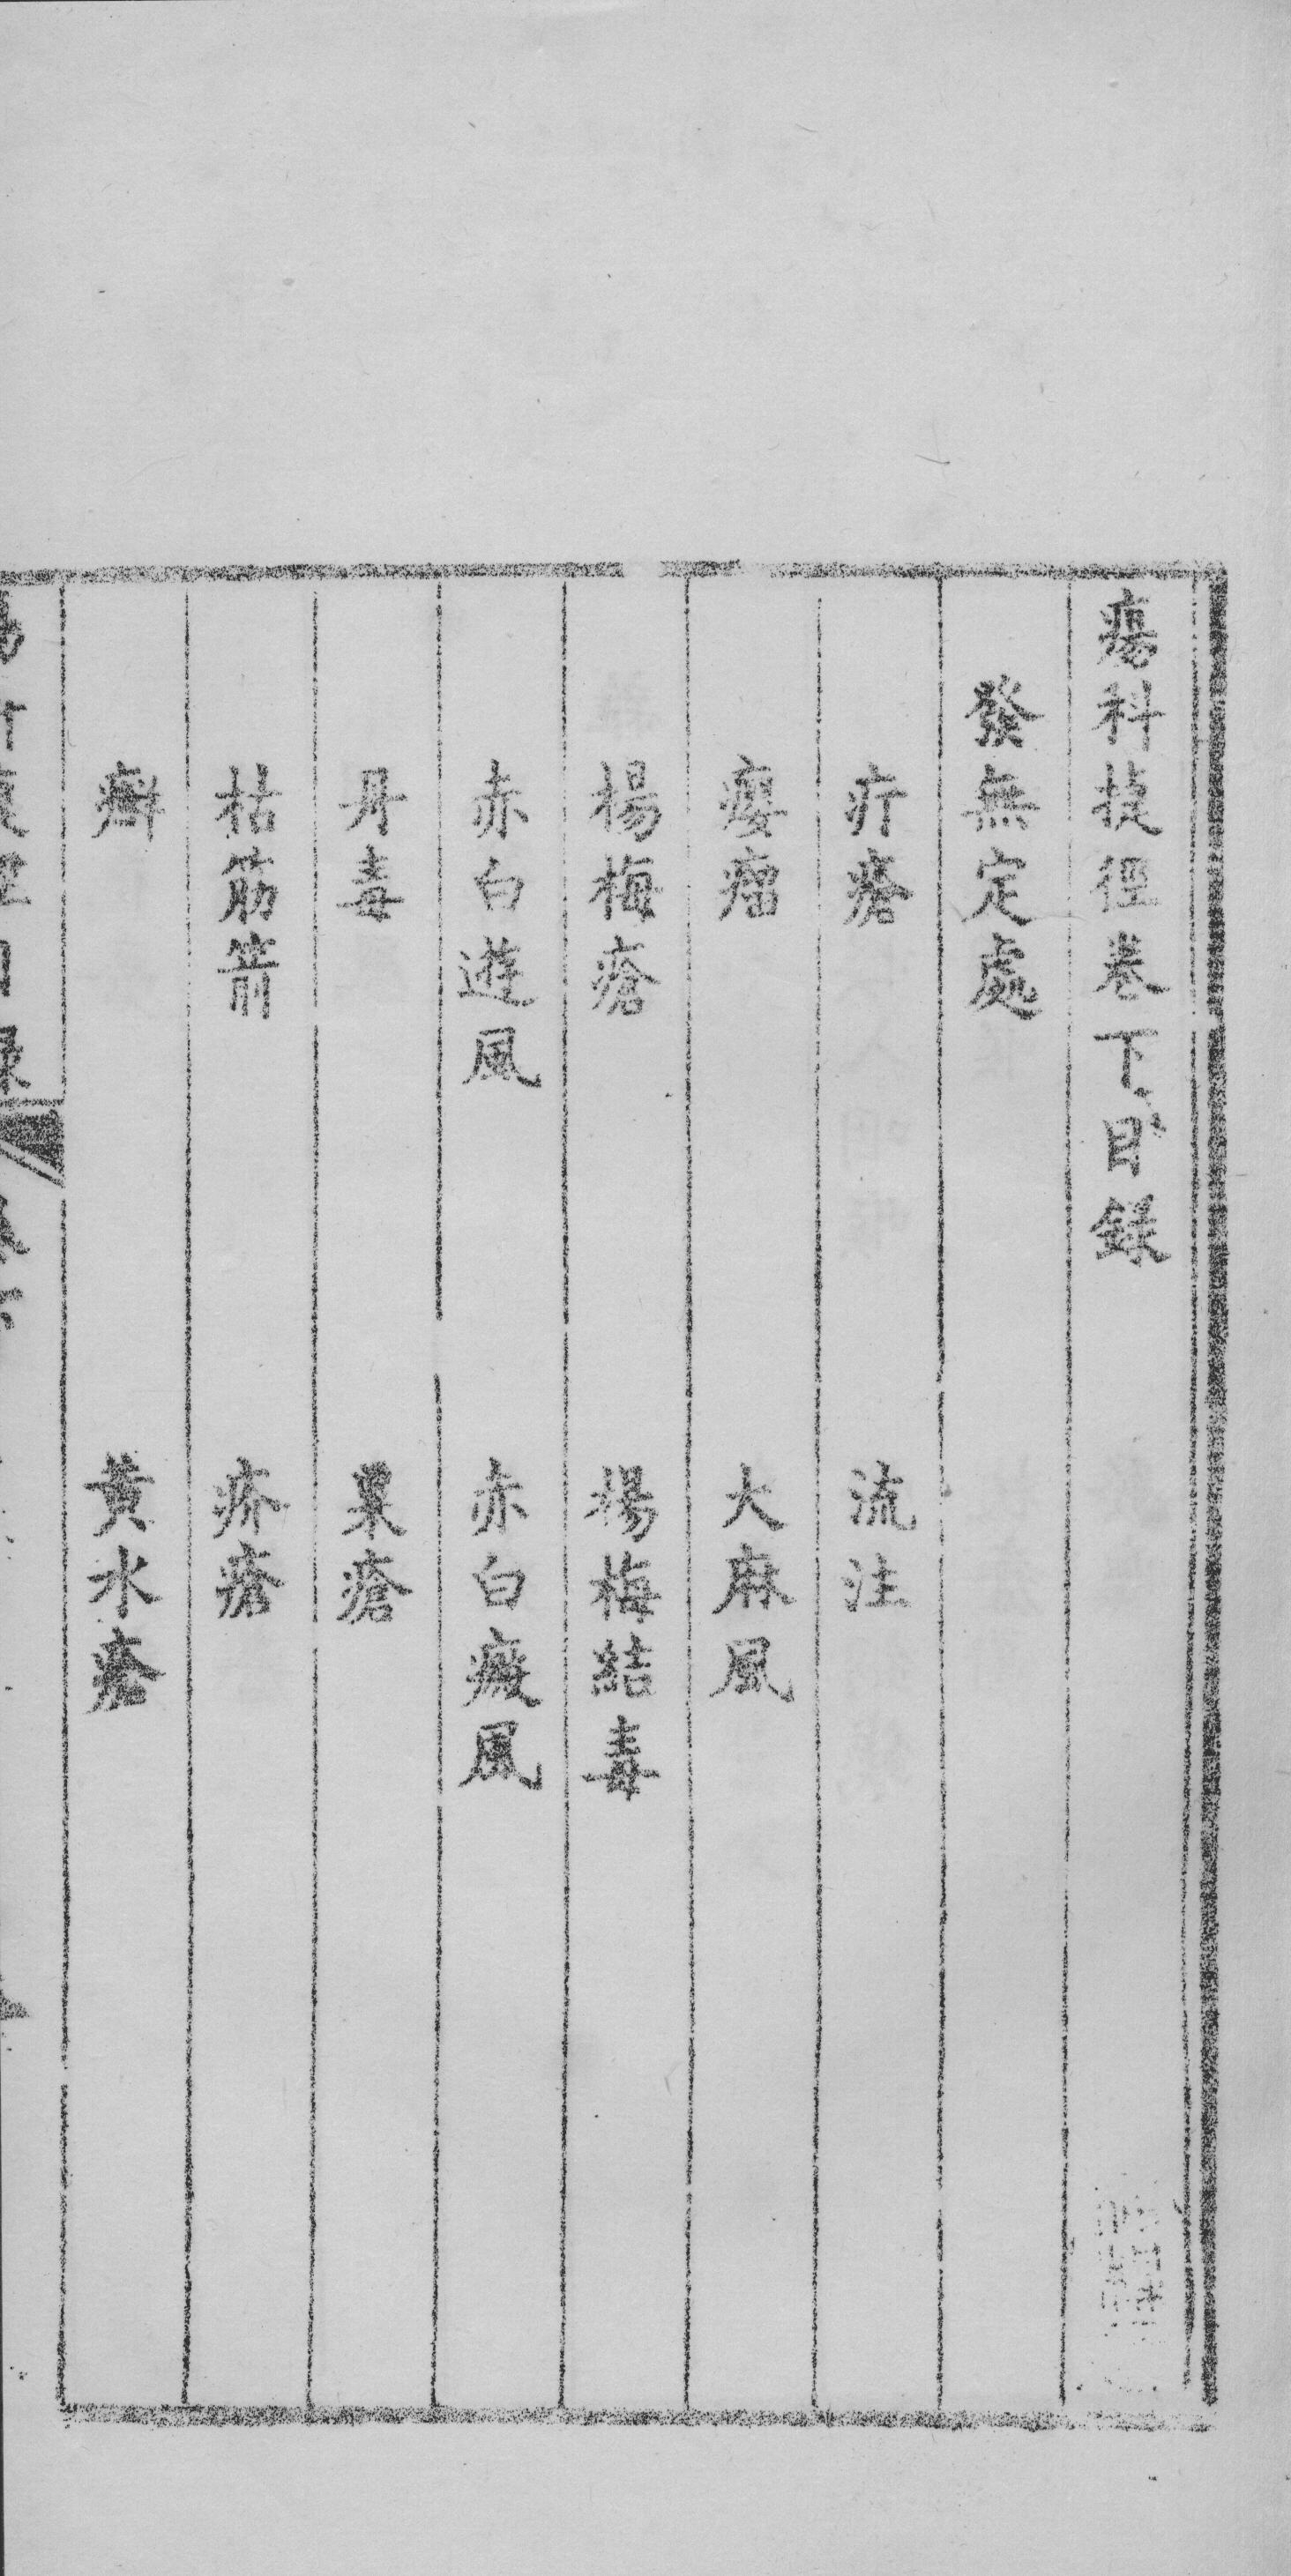 瘍科捷徑卷下目錄
發無定處
疔瘡　流注
癭瘤　大麻風
楊梅瘡　楊梅結毒
赤白遊風　赤白癜風
丹毒　棗瘡
枯筋箭　疥瘡
癬　黃水瘡